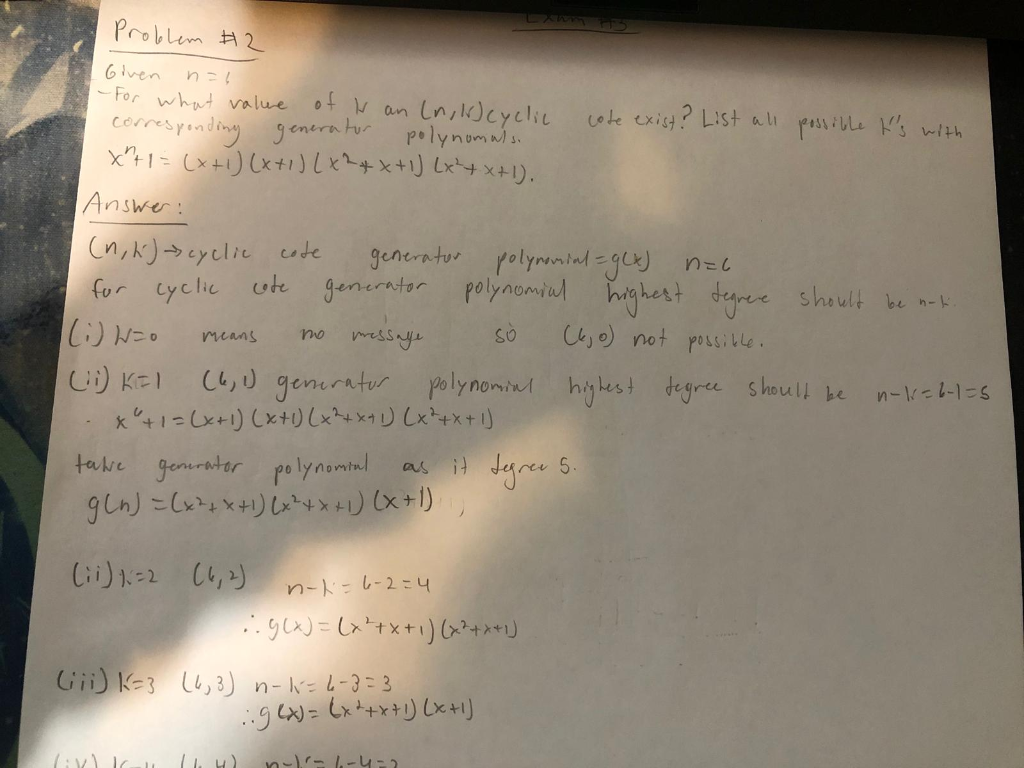 Exam #3
Problem #2
Given n=6
- For what value of k an (n,k) cyclic code exist? List all possible k's with
corresponding generator polynomals.
xⁿ+1 = (x+1)(x+1)(x²+x+1)(x²+x+1).
Answer:
(n,k) → cyclic code generator polynomial = g(x) n=6
for cyclic code generator polynomial highest degree should be n-k.
(i) k=0 means no message so (6,0) not possible.
(ii) k=1 (6,1) generator polynomial highest degree should be n-k=6-1=5
x⁶+1=(x+1)(x+1)(x²+x+1)(x²+x+1)
take generator polynomial as it degree 5.
g(n) = (x²+x+1)(x²+x+1)(x+1)
(ii) k=2 (6,2) n-k = 6-2=4
∴ g(x) = (x²+x+1)(x²+x+1)
(iii) k=3 (6,3) n-k = 6-3=3
∴ g(x) = (x²+x+1)(x+1)
(iv) k=4 (6,4) n-k = 6-4=2